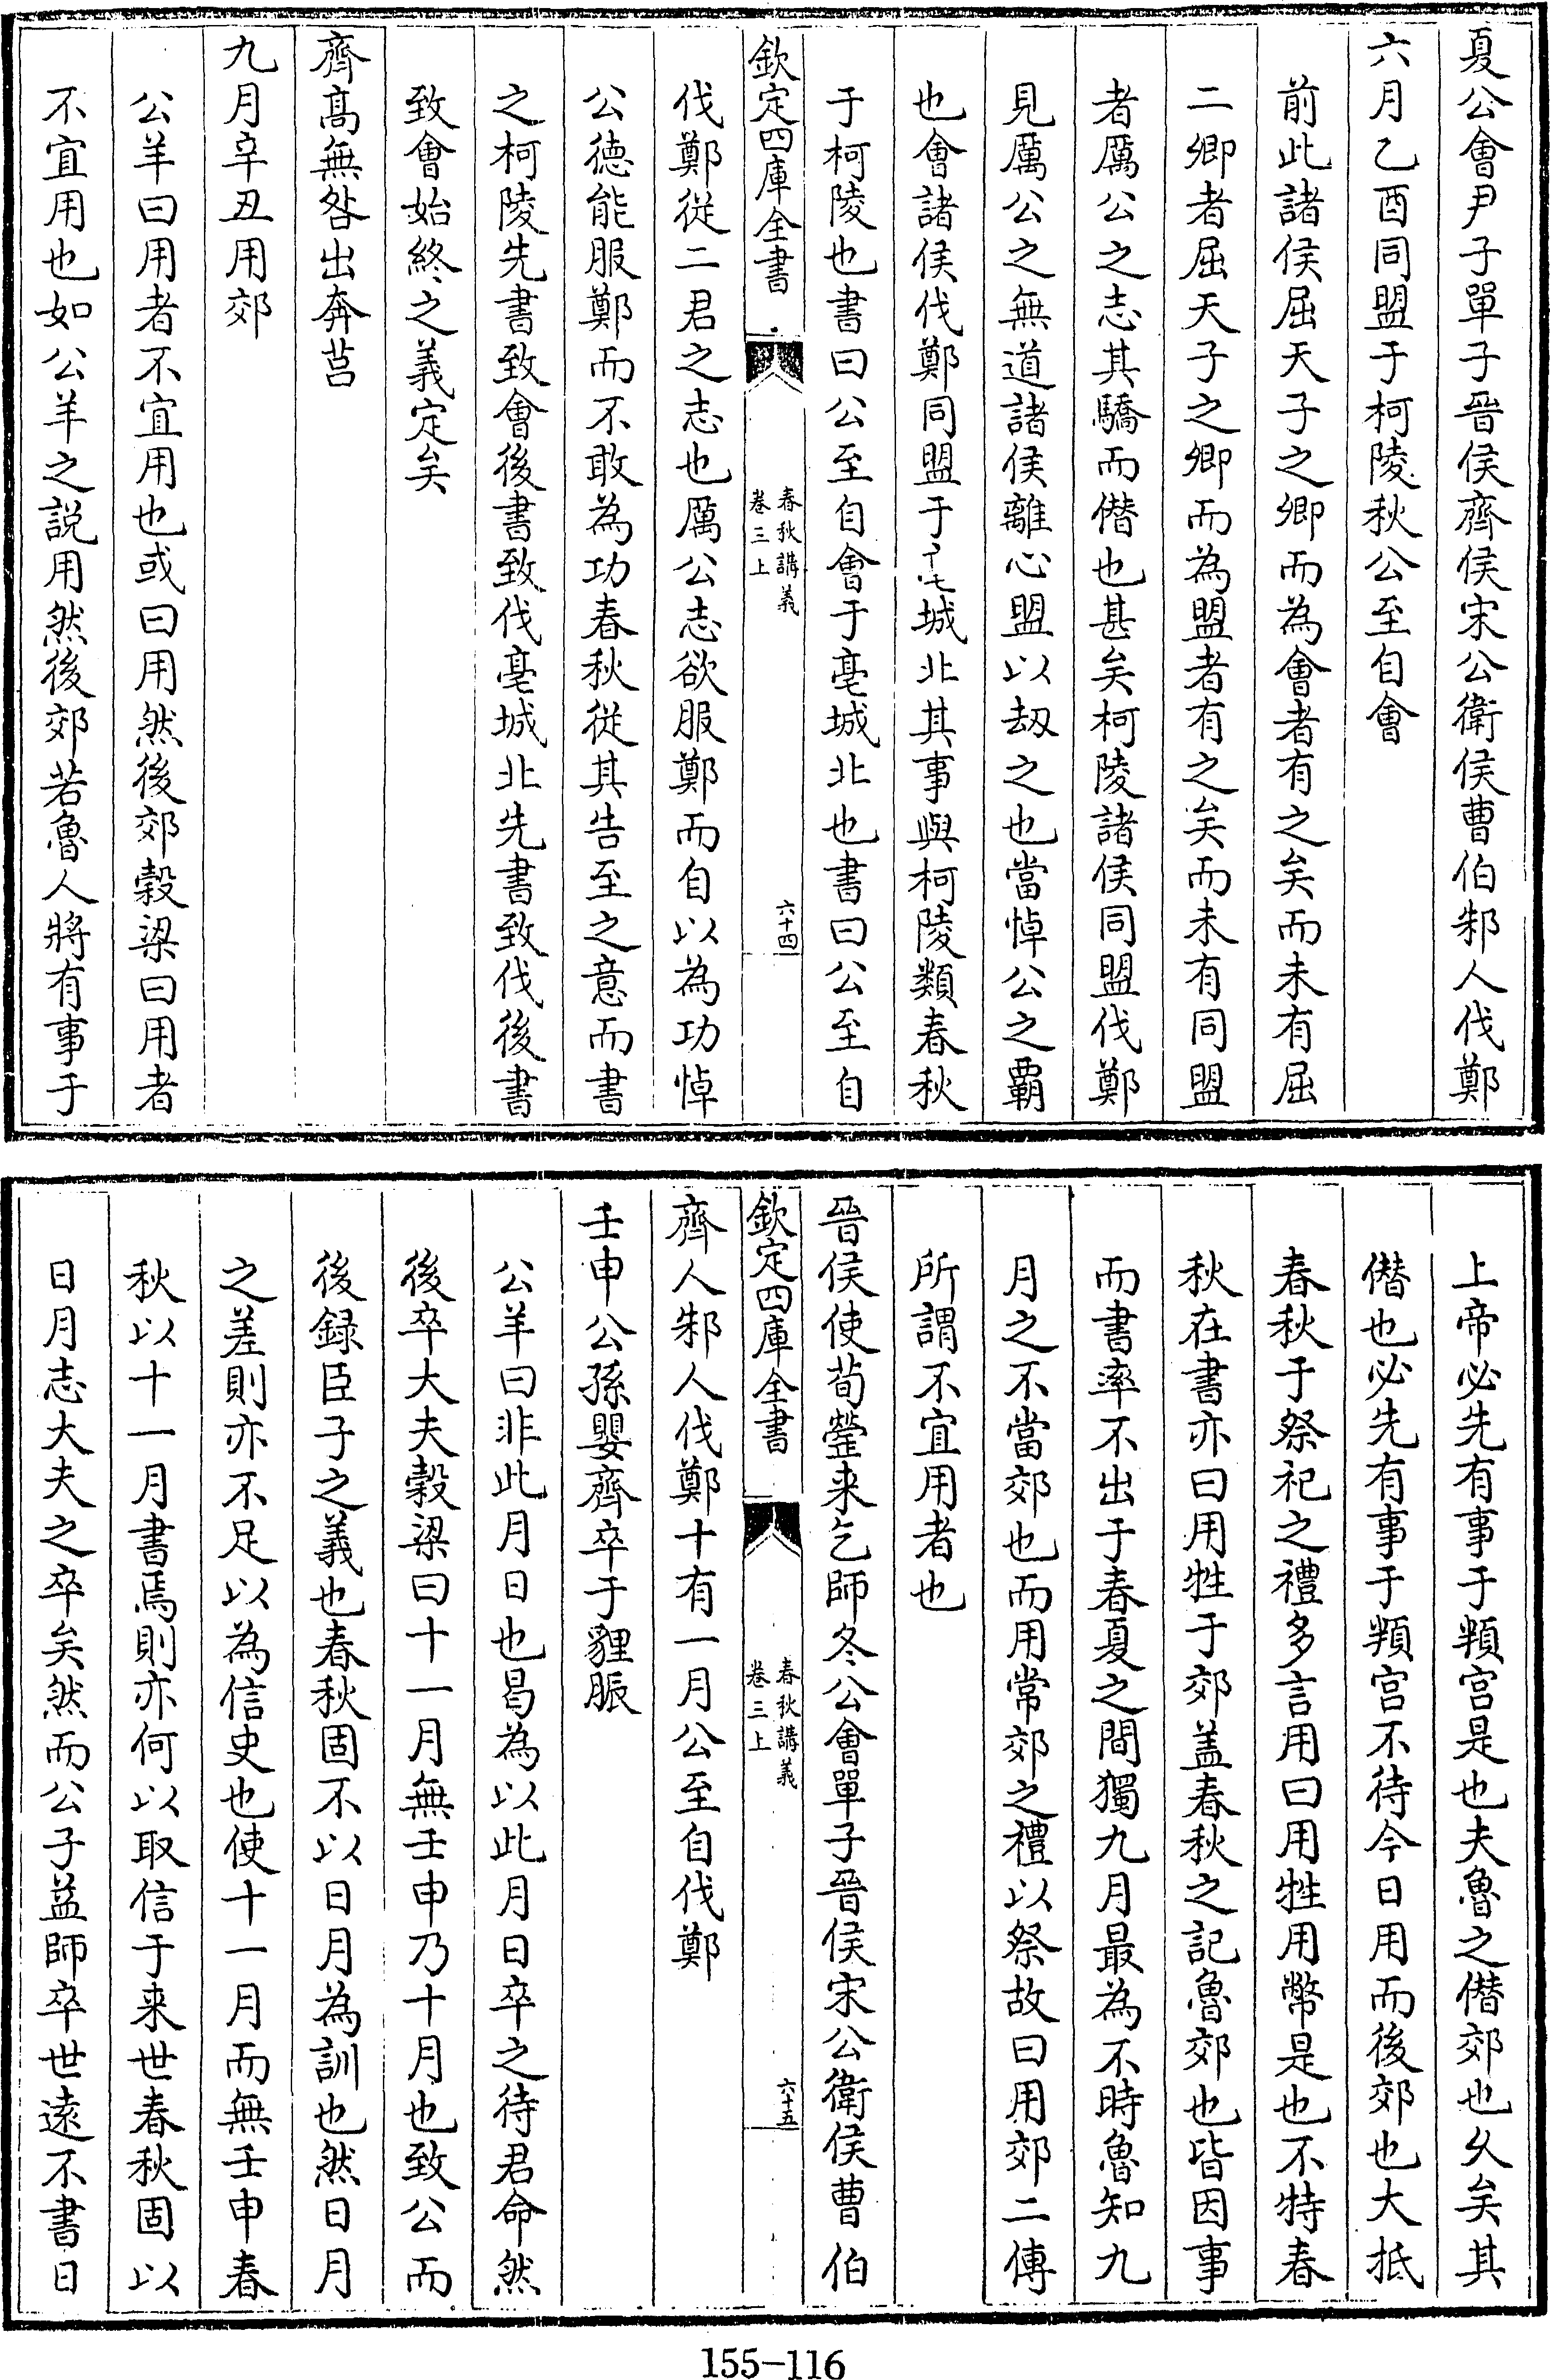 夏公會尹子單子晉侯齊侯宋公衛侯曹伯邾人伐鄭
六月乙酉同盟于柯陵秋公至自會
前此諸侯屈天子之卿而為會者有之矣而未有屈
二卿者屈天子之卿而為盟者有之矣而未有同盟
者厲公之志其驕而僭也甚矣柯陵諸侯同盟伐鄭
見厲公之無道諸侯離心盟以刼之也當悼公之霸
也會諸侯伐鄭同盟于亳城北其事與柯陵類春秋
于柯陵也書曰公至自會于亳城北也書曰公至自
欽定四庫全書
春秋講義
卷三上
六十四
伐鄭從二君之志也厲公志欲服鄭而自以為功悼
公德能服鄭而不敢為功春秋從其告至之意而書
之柯陵先書致會後書致伐亳城北先書致伐後書
致會始終之義定矣
齊髙無咎出奔莒
九月辛丑用郊
公羊曰用者不宜用也或曰用然後郊榖梁曰用者
不宜用也如公羊之説用然後郊若魯人將有事于
上帝必先有事于頖宫是也夫魯之僭郊也久矣其
僭也必先有事于頖宫不待今日用而後郊也大抵
春秋于祭祀之禮多言用曰用牲用幣是也不特春
秋在書亦曰用牲于郊盖春秋之記魯郊也皆因事
而書率不出于春夏之間獨九月最為不時魯知九
月之不當郊也而用常郊之禮以祭故曰用郊二傳
所謂不宜用者也
晉侯使荀罃来乞師冬公會單子晉侯宋公衛侯曹伯
欽定四庫全書
春秋講義
卷三上
六十五
齊人邾人伐鄭十有一月公至自伐鄭
壬申公孫嬰齊卒于貍脤
公羊曰非此月日也曷為以此月日卒之待君命然
後卒大夫榖梁曰十一月無壬申乃十月也致公而
後録臣子之義也春秋固不以日月為訓也然日月
之差則亦不足以為信史也使十一月而無壬申春
秋以十一月書焉則亦何以取信于来世春秋固以
日月志大夫之卒矣然而公子益師卒世逺不書日
155-116